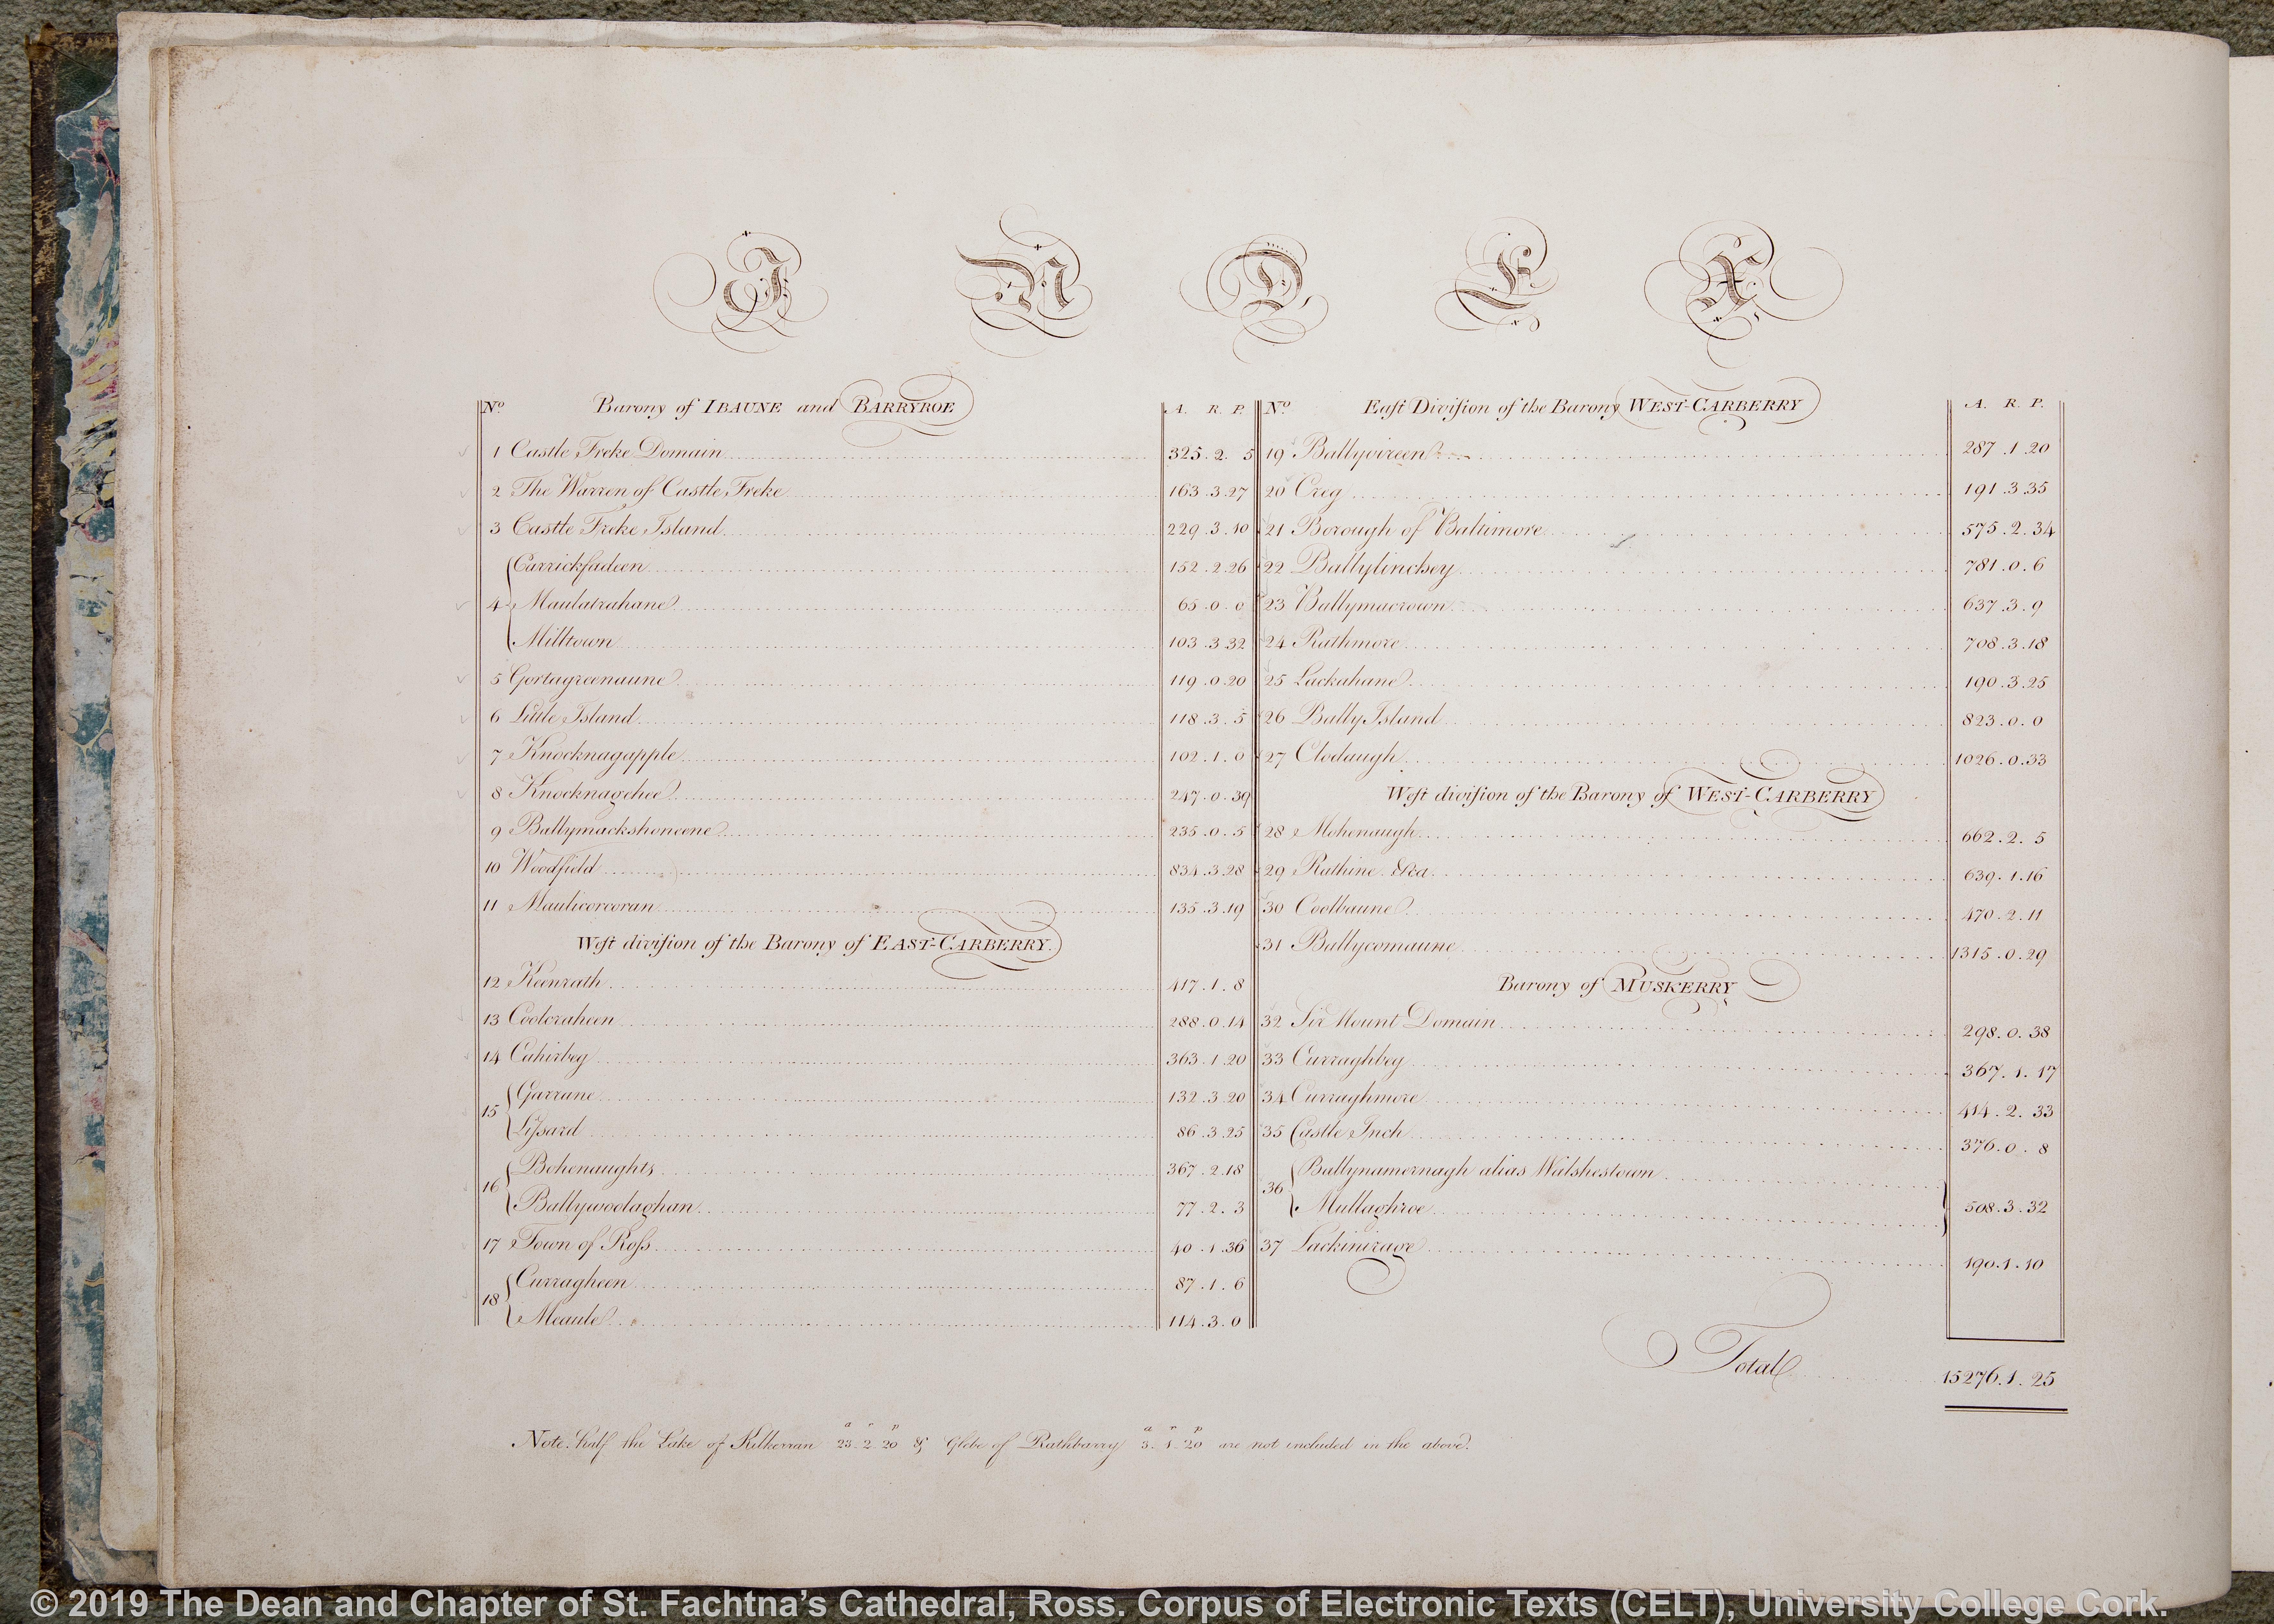 INDEX
No. Barony of IBAUNE and BARRYROE A. R. P.
1 Castle Freke Domain 325.2.5
2 The Warren of Castle Freke 163.3.27
3 Castle Freke Island 229.3.10
Carrickfadeen 152.2.26
4 Maulatrahane 65.0.0
Milltown 103.3.32
5 Gortagreenaune 119.0.20
6 Little Island 118.3.5
7 Knocknagapple 102.1.0
8 Knocknagehee 247.0.39
9 Ballymackshoneene 235.0.5
10 Woodfield 834.3.28
11 Maulicorcoran 135.3.19
West division of the Barony of EAST-CARBERRY.
12 Keenrath 417.1.8
13 Coolcraheen 288.0.14
14 Cahirbeg 363.1.20
15 Garrane 132.3.20
Lissard 86.3.25
16 Bohenaughts 367.2.18
Ballywoolaghan 77.2.3
17 Town of Ross 40.1.36
18 Curragheen 87.1.6
Meaule 114.3.0
No. East Division of the Barony WEST-CARBERRY A. R. P.
19 Ballyvireen 287.1.20
20 Creg 191.3.35
21 Borough of Baltimore 575.2.34
22 Ballylinchey 781.0.6
23 Ballymacrown 637.3.9
24 Rathmore 708.3.18
25 Lackahane 190.3.25
26 Bally Island 823.0.0
27 Clodaugh 1026.0.33
West division of the Barony of WEST-CARBERRY
28 Mohenaugh 662.2.5
29 Rathine &ca. 639.1.16
30 Coolbaune 470.2.11
31 Ballycomaune 1315.0.29
Barony of MUSKERRY
32 Sir Mount Domain 298.0.38
33 Curraghbeg 367.1.17
34 Curraghmore 414.2.33
35 Castle Inch 376.0.8
36 Ballynamornagh alias Walshestown
Mullaghroe 508.3.32
37 Lackinirage 190.1.10
Total 15276.1.25
Note. Half the Lake of Kilkerran a 23. r 2. p 20 & Glebe of Rathbarry a 3. r 1. p 20 are not included in the above.
© 2019 The Dean and Chapter of St. Fachtna’s Cathedral, Ross. Corpus of Electronic Texts (CELT), University College Cork.